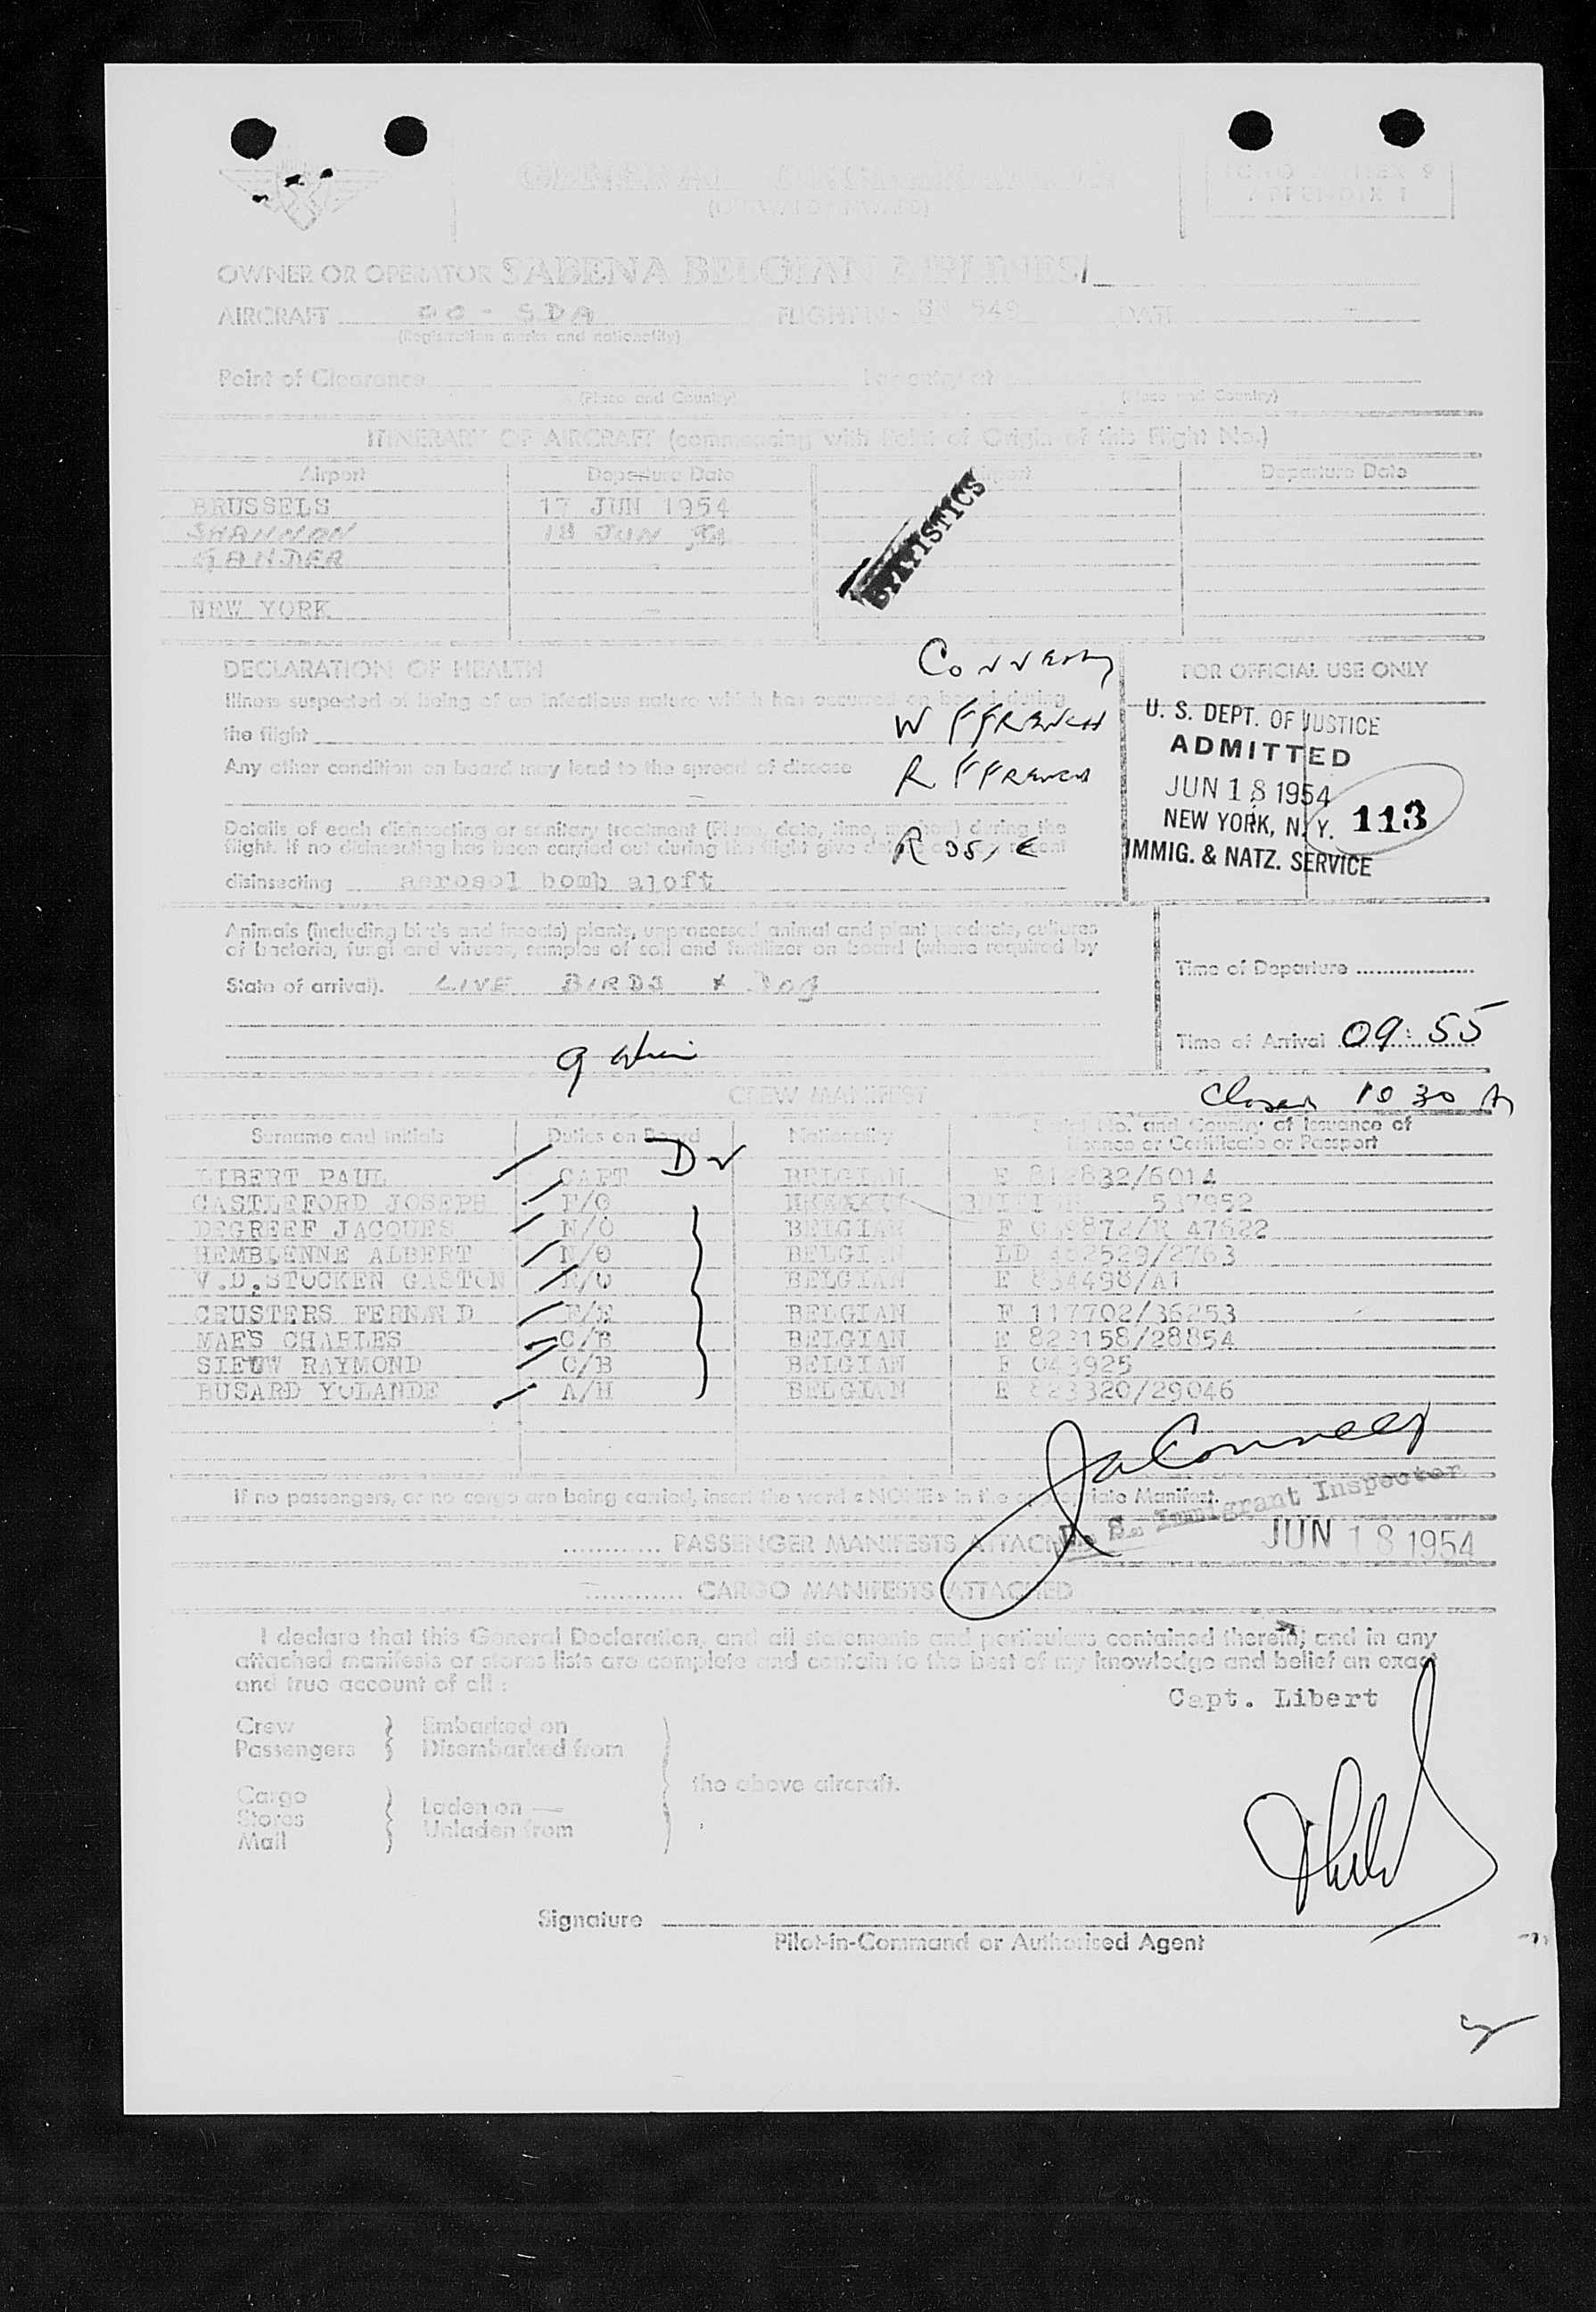 GENERAL DECLARATION
(OUTWARD / INWARD)
ICAO ANNEX 9
APPENDIX 1
OWNER OR OPERATOR SABENA BELGIAN AIRLINES
AIRCRAFT OO - SDA FLIGHT No SN 549 DATE
(Registration marks and nationality)
Point of Clearance
(Place and Country) (Place and Country)
ITINERARY OF AIRCRAFT (commencing with Point of Origin of this Flight No.)
Airport Departure Date Airport Departure Date
BRUSSELS 17 JUN 1954
SHANNON 18 JUN 54
GANDER
NEW YORK
STATISTICS
DECLARATION OF HEALTH
Illness suspected of being of an infectious nature which has occurred on board during
the flight
Any other condition on board may lead to the spread of disease
Details of each disinsecting or sanitary treatment (Place, date, time, method) during the
flight. If no disinsecting has been carried out during the flight give details of most recent
disinsecting aerosol bomb aloft
W FFRENCH
R FFRENCH
ROSIE
FOR OFFICIAL USE ONLY
U. S. DEPT. OF JUSTICE
ADMITTED
JUN 18 1954
NEW YORK, N. Y. 113
IMMIG. & NATZ. SERVICE
Animals (including birds and insects) plants, unprocessed animal and plant products, cultures
of bacteria, fungi and viruses, samples of soil and fertilizer on board (where required by
State of arrival). LIVE BIRDS + Dog
Time of Departure
Time of Arrival 09:55
Closed 10 30 A
CREW MANIFEST
Surname and Initials Duties on Board Nationality Serial No. and Country of Issuance of
Licence or Certificate or Passport
LIBERT PAUL CAPT BELGIAN
CASTLEFORD JOSEPH F/O 537952
DEGREEF JACQUES N/O BELGIAN
HEMBLENNE ALBERT BELGIAN
V.D.STOCKEN GASTON BELGIAN E 834498/A1
CEUSTERS FERNAND F/E BELGIAN F 117702/36253
MAES CHARLES C/B BELGIAN
SIEUW RAYMOND C/B BELGIAN F 043925
BUSARD YOLANDE A/H BELGIAN
If no passengers, or no cargo are being carried, insert the word « NONE » in the appropriate Manifest.
PASSENGER MANIFESTS ATTACHED
U. S. Immigrant Inspector
JUN 18 1954
CARGO MANIFESTS ATTACHED
I declare that this General Declaration, and all statements and particulars contained therein, and in any
attached manifests or stores lists are complete and contain to the best of my knowledge and belief an exact
and true account of all :
Capt. Libert
Crew Embarked on
Passengers Disembarked from
the above aircraft.
Cargo
Stores Laden on
Mail Unladen from
Signature
Pilot-in-Command or Authorised Agent